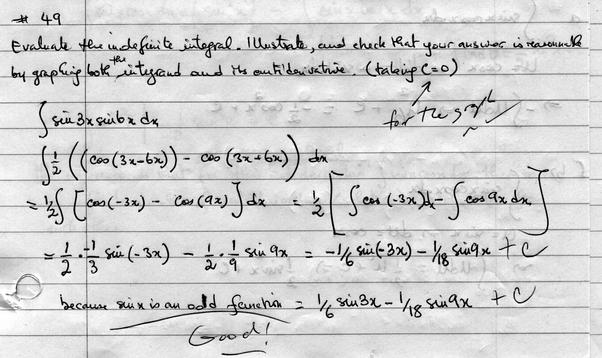 # 49
Evaluate the indefinite integral. Illustrate, and check that your answer is reasonable
by graphing both the integrand and its antiderivative. (taking C=0)
for the graph
∫ sin3x sin6x dx
∫ 1/2 ((cos(3x-6x)) - cos(3x+6x)) dx
= 1/2 ∫ [cos(-3x) - cos(9x)] dx = 1/2 [∫ cos(-3x)dx - ∫ cos9x dx]
= 1/2 · -1/3 sin(-3x) - 1/2 · 1/9 sin9x = -1/6 sin(-3x) - 1/18 sin9x + C
because sinx is an odd function = 1/6 sin3x - 1/18 sin9x + C
Good!